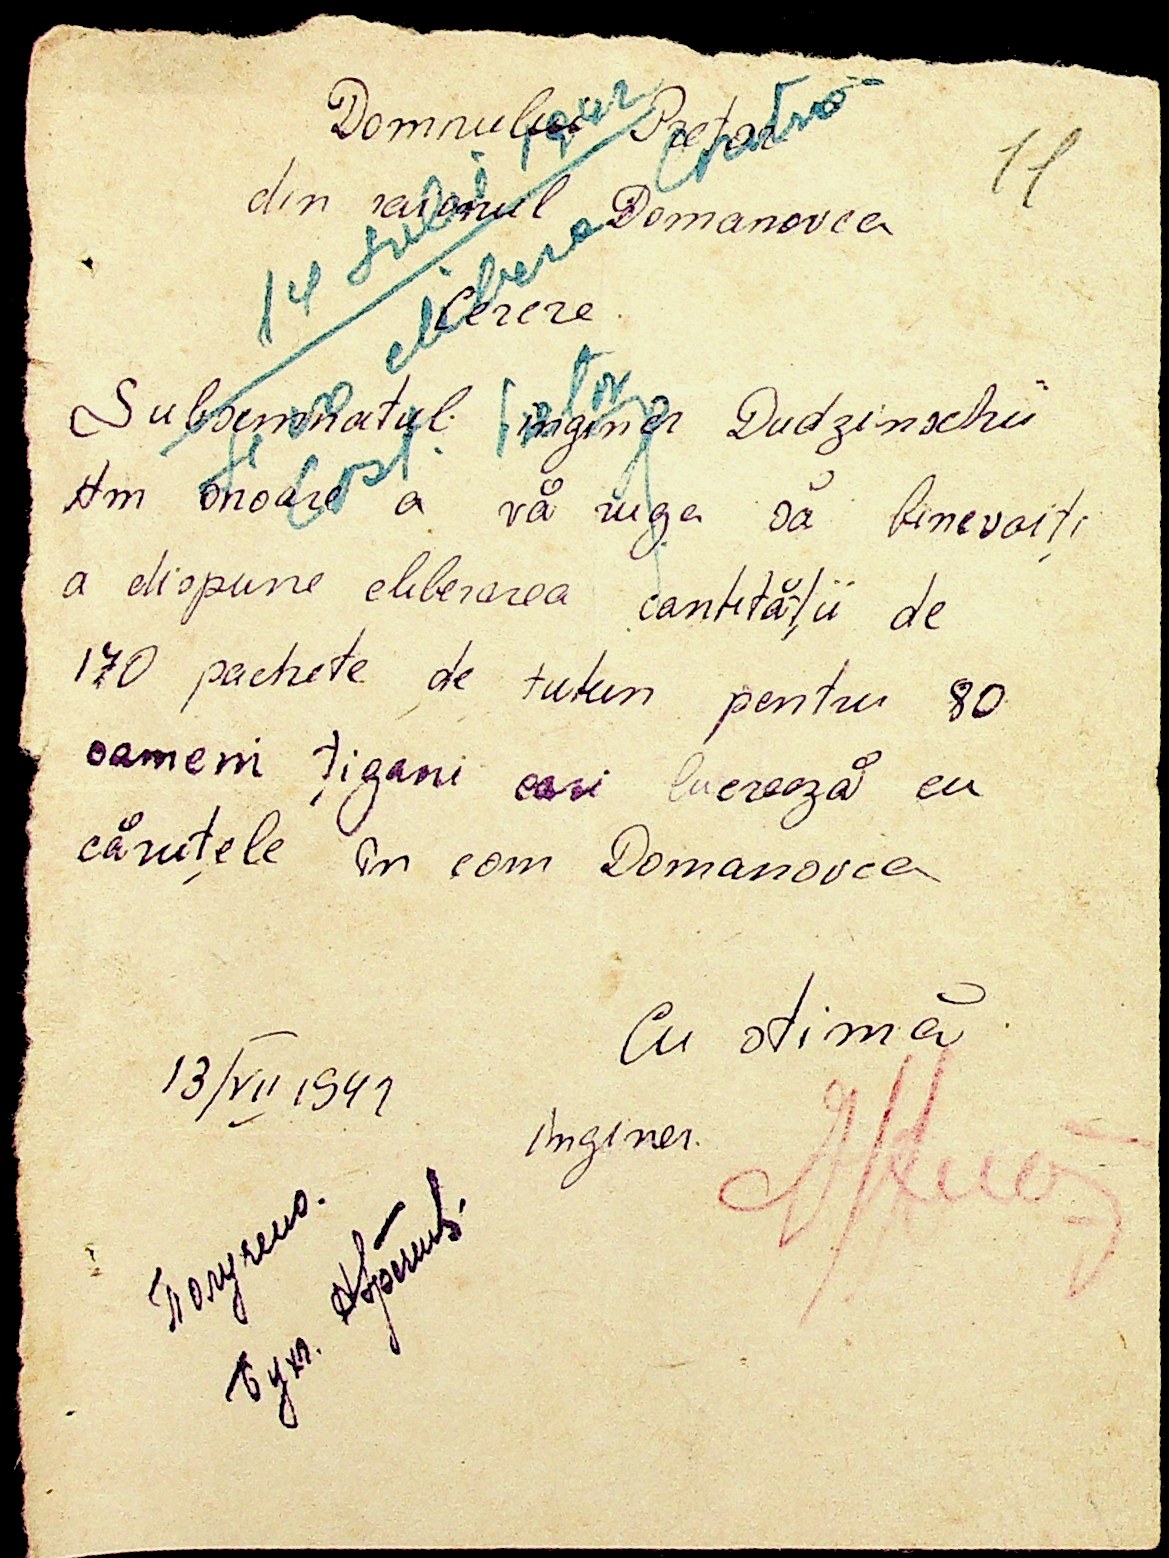 Domnului Pretor
din raionul Domanovca
11
14 Iulie 1942
Se va elibera contra
cost.
Cerere.
Subsemnatul inginer Dudzinschii
Am onoare a vă ruga să binevoiți
a dispune eliberarea cantitățíi de
170 pachete de tutun pentru 80
oameni țigani cari lucrează cu
căruțele în com Domanovca
Cu stimă
13/VII 1942
inginer.
Получено.
Бух.